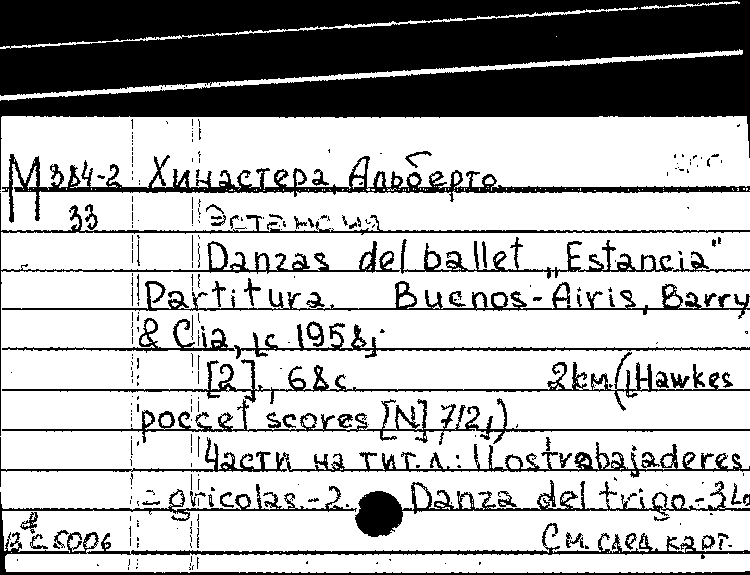 М 384-2 Хинастера, Альберто.
33 Эстансия
Danzas del ballet „Estancia"
Partitura. Buenos-Airis, Barry
& Cia, [c 1958].
[2]., 68 с. 2km. ([Hawkes
poccet scores [N] 712])
Части на тит. л.: 1 Los trabajaderes
agricolas.-2. Danza del trigo.-3 Lo
См. след. карт.